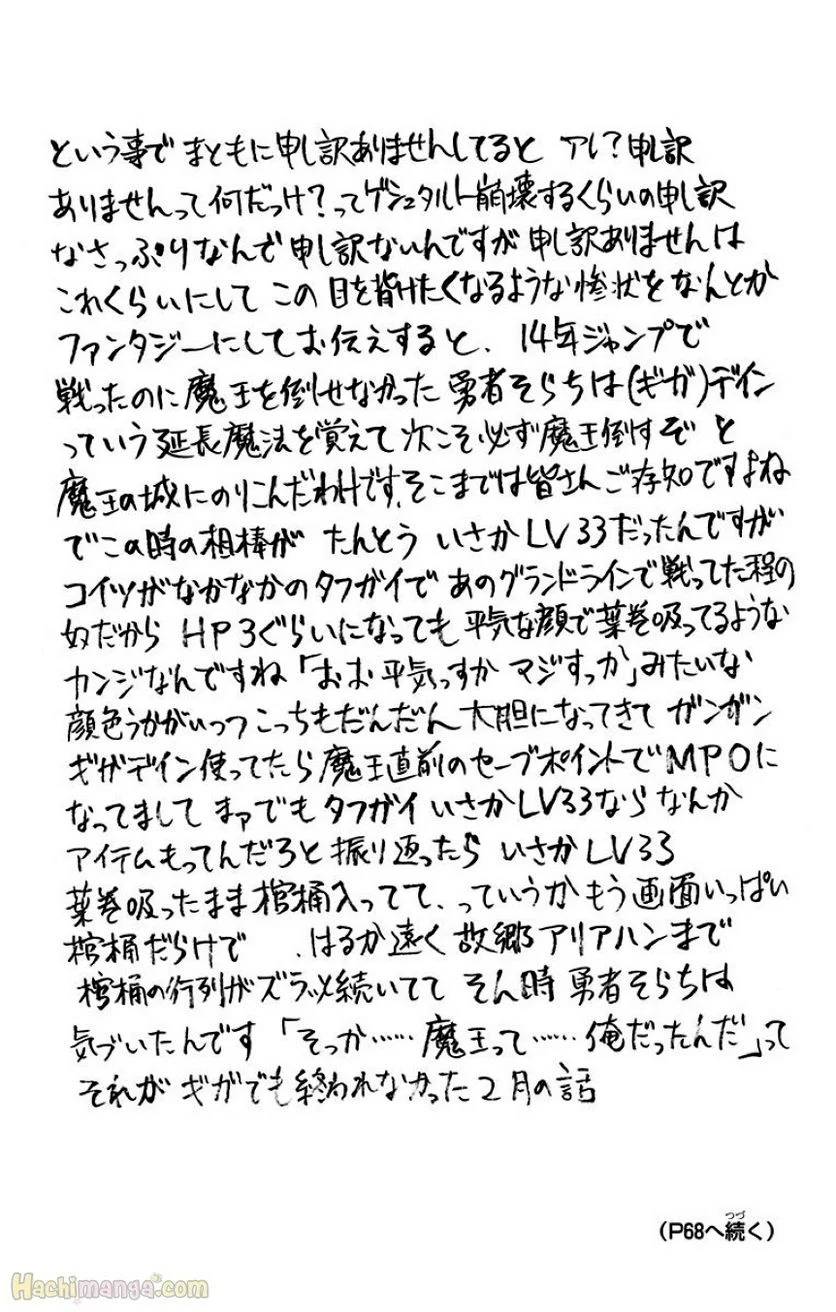 という事で まともに申し訳ありませんしてると アレ?申し訳
ありませんって何だっけ?ってゲシュタルト崩壊するくらいの申し訳
なさっぷりなんで申し訳ないんですが申し訳ありませんは
これくらいにして この目を背けたくなるような惨状をなんとか
ファンタジーにしてお伝えすると、14年ジャンプで
戦ったのに魔王を倒せなかった勇者そらちは(ギガ)デイン
っていう延長魔法を覚えて次こそ必ず魔王倒すぞと
魔王の城にのりこんだわけです、そこまでは皆さんご存知ですよね
でこの時の相棒が たんとう いさかLV33だったんですが
コイツがなかなかのタフガイで あのグランドラインで戦ってた程の
奴だから HP3ぐらいになっても平気な顔で葉巻吸ってるような
カンジなんですね「おお平気っすか マジすっか」みたいな
顔色うかがいつつこっちもだんだん大胆になってきて ガンガン
ギガデイン使ってたら魔王直前のセーブポイントでMP0に
なってまして まァでもタフガイいさかLV33ならなんか
アイテムもってんだろと振り返ったら いさかLV33
葉巻吸ったまま棺桶入ってて、っていうかもう画面いっぱい
棺桶だらけで 、はるか遠く故郷アリアハンまで
棺桶の行列がズラッと続いてて そん時勇者そらちは
気づいたんです「そっか……魔王って……俺だったんだ」って
それが ギガでも終われなかった2月の話
(P68へ続く)
つづ
Hachimanga.com